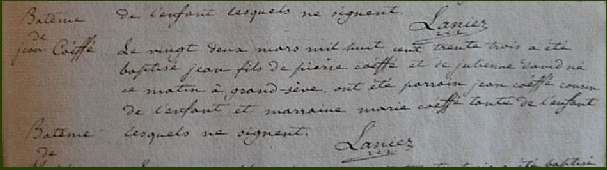 Batême de l'enfant lesquels ne signent.
Lanier
de
jean Coëffé Le vingt deux mars mil huit cent trente trois a été
baptisé jean fils de pierre coëffé et de julienne david né
ce matin à grand-sève, ont été parrain jean coëffé cousin
de l'enfant et marraine marie coëffé tante de l'enfant
Batême lesquels ne signent.
Lanier
de
été baptisé